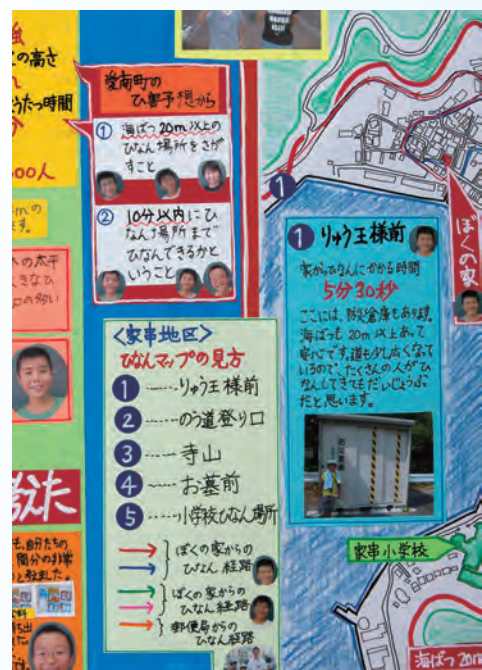 強
の高さ
うたつ時間
分
000人
mの
す。
の太平
きなひ
の多い
考えた
も、自分たちの
間分の非常
と教えました。
愛南町の
ひ害予想から
① 海ばつ20m以上の
ひなん場所をさが
すこと
② 10分以内にひ
なん場所まで
ひなんできるかと
いうこと
<家串地区>
ひなんマップの見方
1 ……りゅう王様前
2 ……のう道登り口
3 ……寺山
4 ……お墓前
5 ……小学校ひなん場所
ぼくの家からの
ひなん経路
ぼくの家からの
ひなん経路
郵便局からの
ひなん経路
1
ぼくの家
1 りゅう王様前
家からひなんにかかる時間
5分30秒
ここには、防災倉庫もあります。
海ばつも20m以上あって
安心です。道も少し広くなって
いるので、たくさんの人がひ
なんしてきてもだいじょうぶ
だと思います。
防災倉庫
家串小学校
海ばつ20m